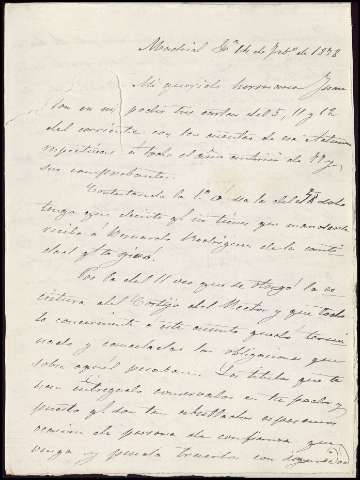 Madrid 14 de Feb.o de 1878
Mi querido hermano Juan
Son en mi poder tus cartas del 5, 11 y 12
del corriente con las cuentas de esa
respectivas a todo el año anterior de 77 y
sus comprobantes.
Contestando la 1.a o sea la del 5 solo
tengo que decirte q.e me mandaras
recibo Bernardo Rodriguez de la canti-
dad q.e te giro.
Por la del 11 veo que se otorgó la es-
critura del Cortijo del Rector y que todo
lo concerniente a este asunto quedó termi-
nado y canceladas las obligaciones que
sobre aquel pesaban. Los titulos que te
han entregado conservalos en tu poder y
puesto q.e son tan abultados esperaremos
ocasion de persona de confianza que
venga y pueda traerlos con seguridad